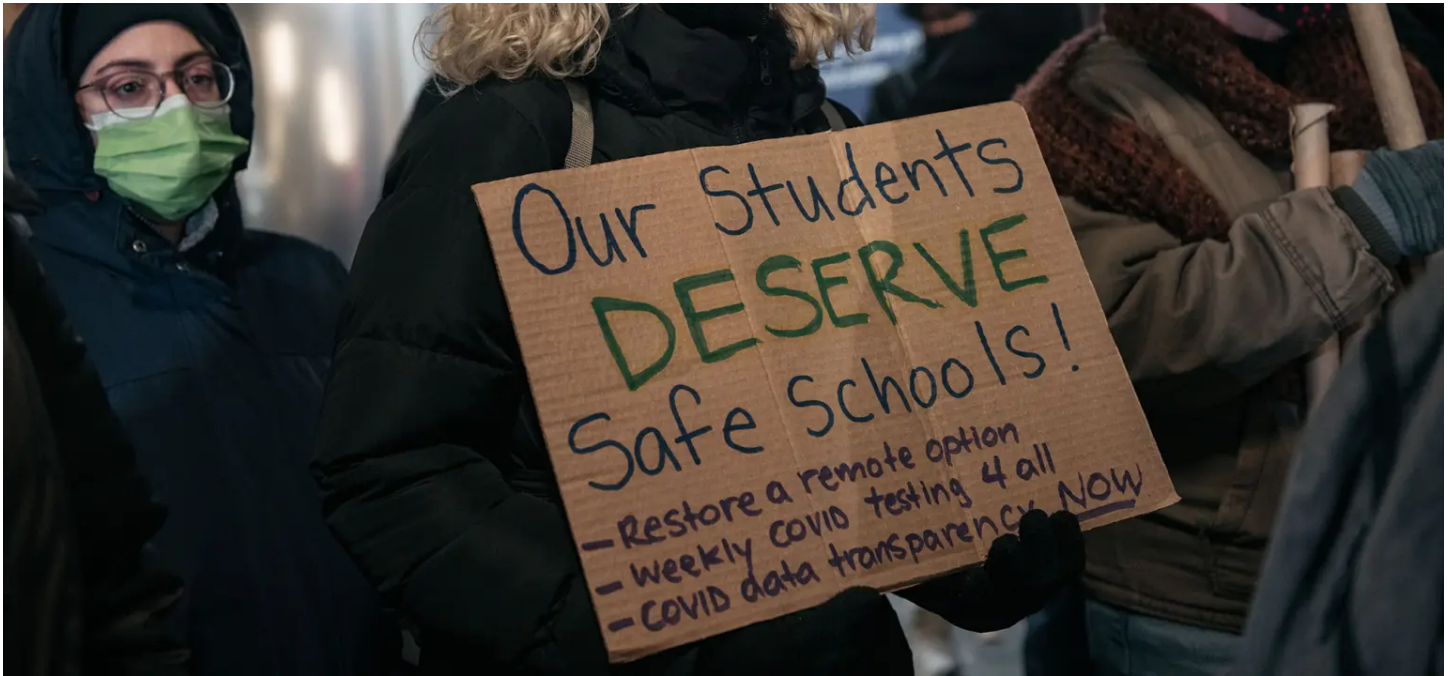 Our Students
DESERVE
Safe Schools!
- Restore a remote option
- weekly COVID testing 4 all
- COVID data transparency NOW